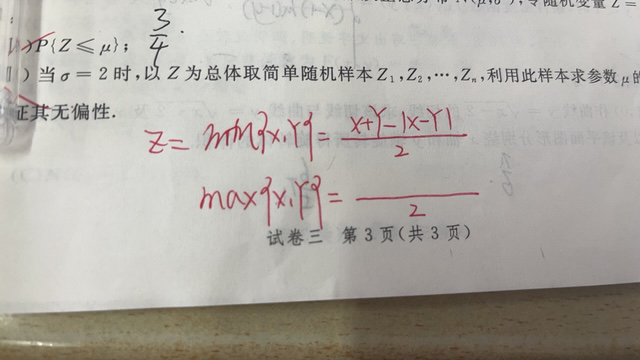 3/4.
P{Z ≤ μ};
)当 σ = 2 时,以 Z 为总体取简单随机样本 Z₁,Z₂,…,Zₙ,利用此样本求参数 μ的
正其无偏性.
Z = min{X,Y} = (X+Y-|X-Y|)/2
max{X,Y} = ——/2
试卷三 第 3 页(共 3 页)